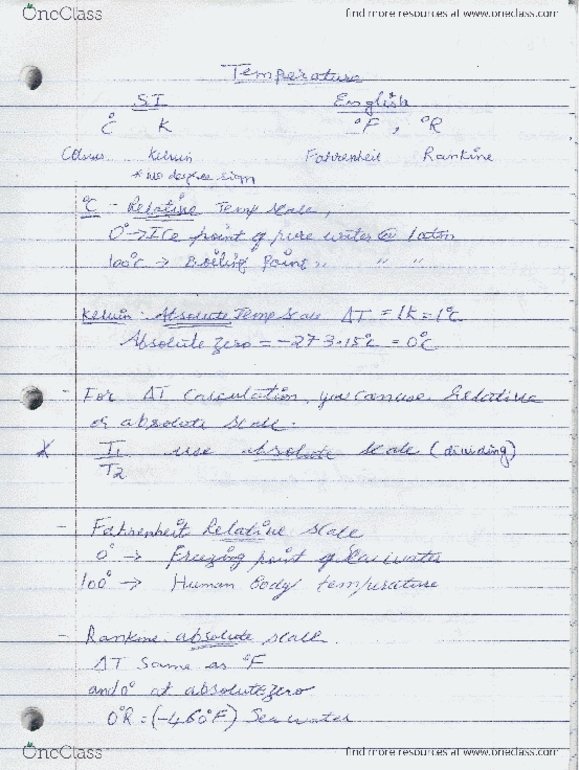 OneClass
find more resources at www.oneclass.com
Temperature
SI English
°C K °F , °R
Kelvin Fahrenheit Rankine
* no degree sign
°C - Relative Temp scale,
0° → Ice point of pure water @ 1atm
100°c → Boiling Point " " "
Kelvin - Absolute Temp Scale ΔT = 1K = 1°C
Absolute zero = -273.15°c = 0°C
- For ΔT Calculation, you can use Relative
or absolute scale.
T1/T2 use absolute scale (dividing)
- Fahrenheit Relative scale
0° → Freezing point of sea water
100° → Human Body temperature
- Rankine absolute scale.
ΔT Same as °F
and 0° at absolute zero
0°R = (-460°F) Sea water
OneClass
find more resources at www.oneclass.com